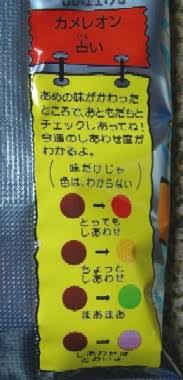 カメレオン
占い
うらな
あめの味がかわった
ところで、おともだちと
チェックしあってね!
今週のしあわせ度が
わかるよ。
(味だけじゃ
色は、わからない)
→
とっても
しあわせ
→
ちょっと
しあわせ
→
まあまあ
→
しあわせは